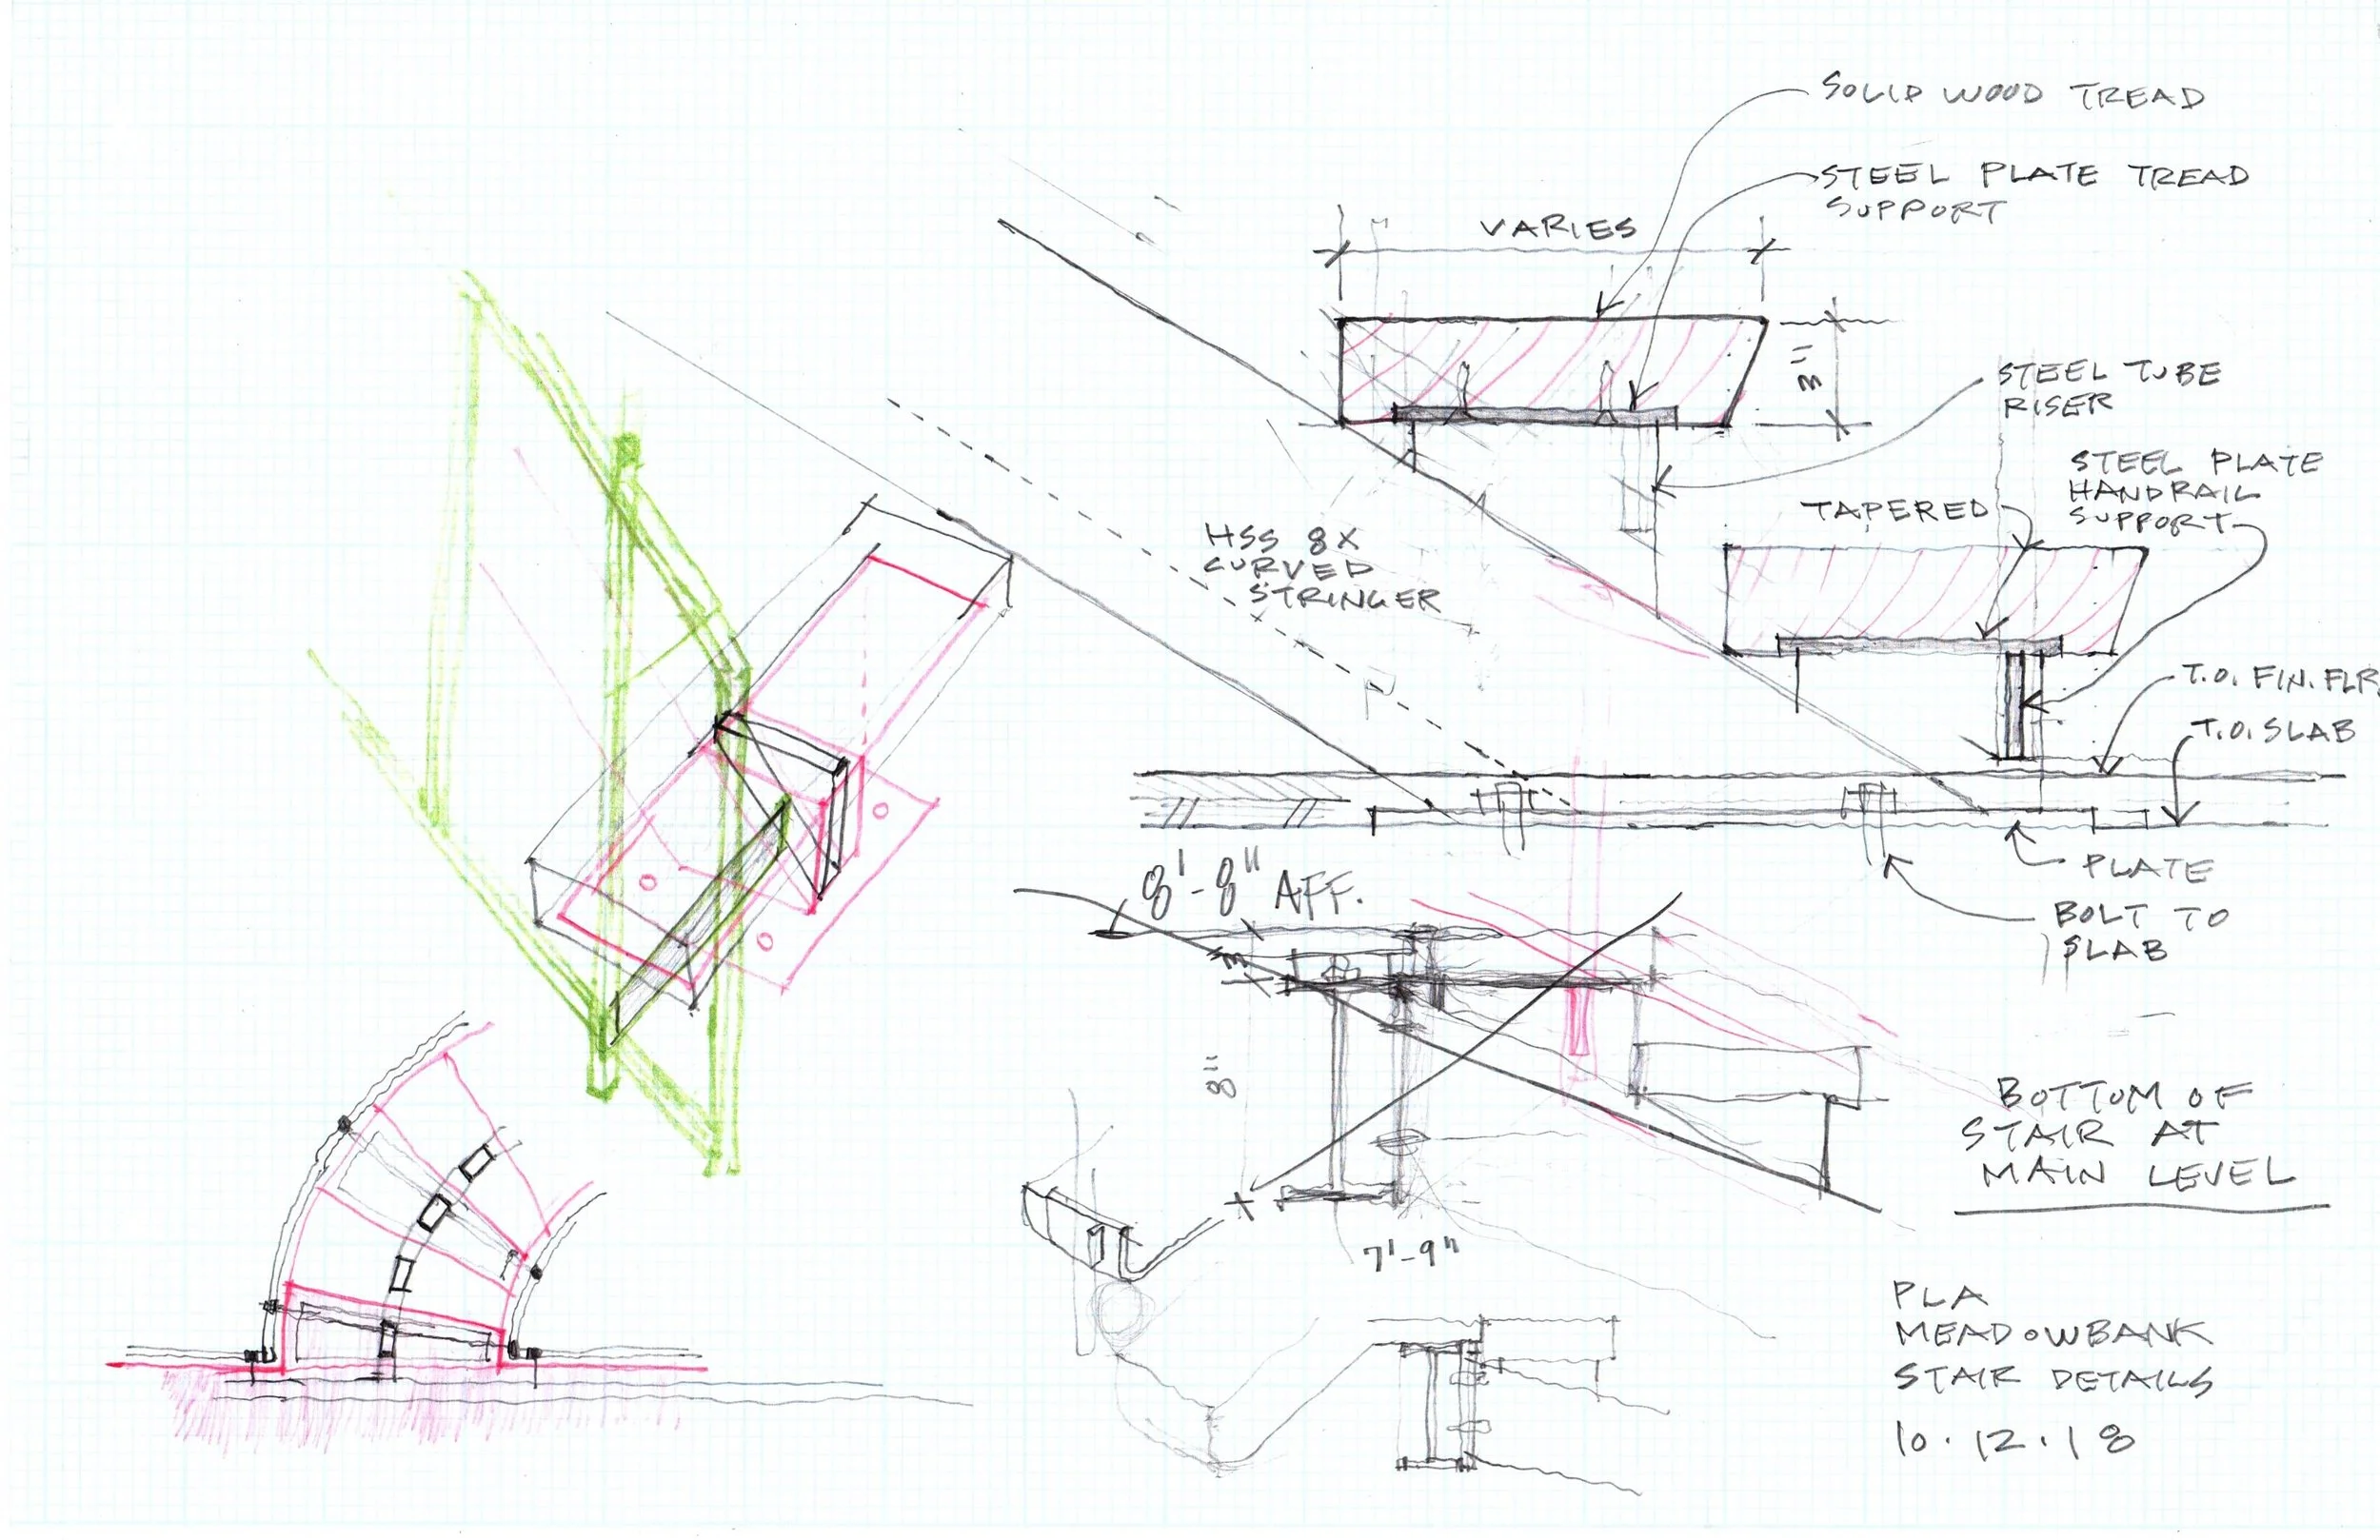 SOLID WOOD TREAD
STEEL PLATE TREAD
SUPPORT
VARIES
3"
STEEL TUBE
RISER
STEEL PLATE
HANDRAIL
SUPPORT
TAPERED
HSS 8X
CURVED
STRINGER
T.O. FIN. FLR.
T.O. SLAB
PLATE
BOLT TO
SLAB
8'-8" AFF.
3"
8"
7'-9"
BOTTOM OF
STAIR AT
MAIN LEVEL
PLA
MEADOWBANK
STAIR DETAILS
10.12.18